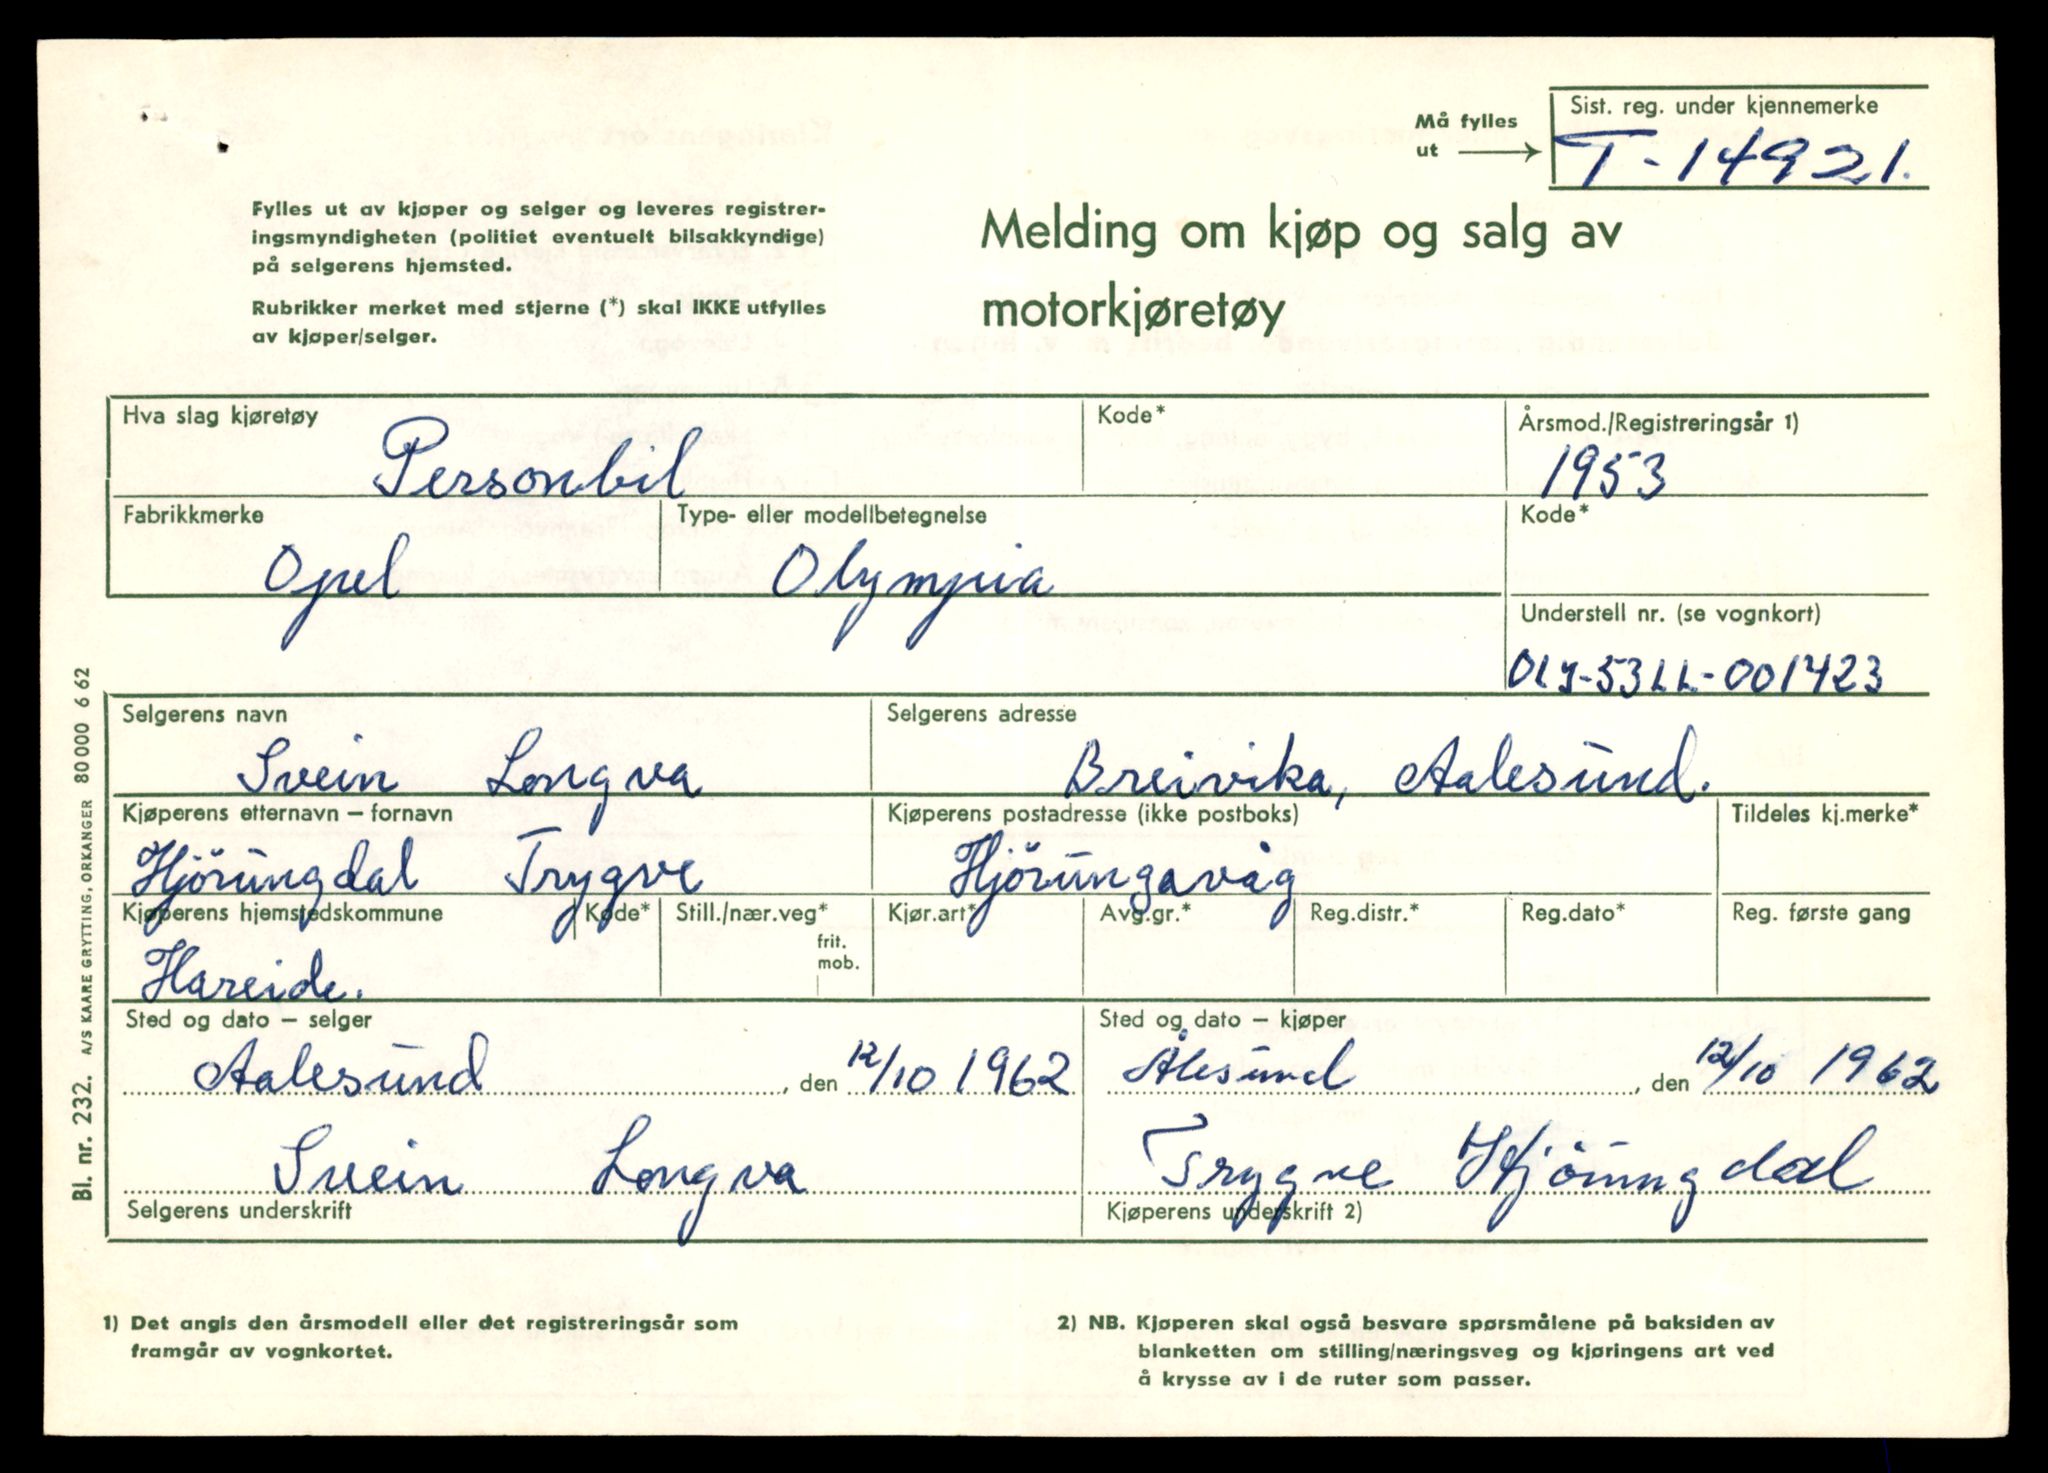 Må fylles
ut
Sist. reg. under kjennemerke
T-14921.
Fylles ut av kjøper og selger og leveres registrer-
ingsmyndigheten (politiet eventuelt bilsakkyndige)
på selgerens hjemsted.
Rubrikker merket med stjerne (*) skal IKKE utfylles
av kjøper/selger.
Melding om kjøp og salg av
motorkjøretøy
Hva slag kjøretøy
Personbil
Kode*
Årsmod./Registreringsår 1)
1953
Fabrikkmerke
Opel
Type- eller modellbetegnelse
Olympia
Kode*
Understell nr. (se vognkort)
OLY-53LL-001423
Selgerens navn
Svein Longva
Selgerens adresse
Breivika, Aalesund.
Kjøperens etternavn – fornavn
Hjörungdal Trygve
Kjøperens postadresse (ikke postboks)
Hjörungavåg
Tildeles kj.merke*
Kjøperens hjemstedskommune
Hareide.
Kode*
Still./nær.veg*
frit.
mob.
Kjør.art*
Avg.gr.*
Reg.distr.*
Reg.dato*
Reg. første gang
Sted og dato – selger
Aalesund, den 12/10 1962
Sted og dato – kjøper
Ålesund, den 12/10 1962
Svein Longva
Selgerens underskrift
Trygve Hjörungdal
Kjøperens underskrift 2)
1) Det angis den årsmodell eller det registreringsår som
framgår av vognkortet.
2) NB. Kjøperen skal også besvare spørsmålene på baksiden av
blanketten om stilling/næringsveg og kjøringens art ved
å krysse av i de ruter som passer.
Bl. nr. 232. A/S KAARE GRYTTING, ORKANGER 80000 6 62